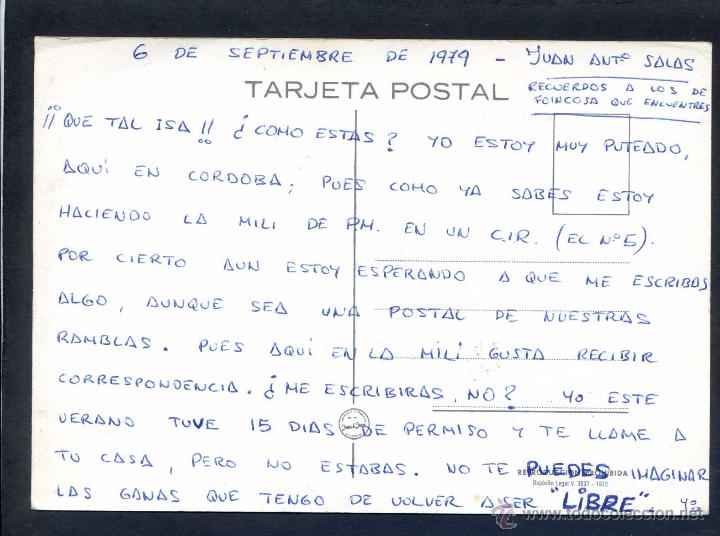 6 DE SEPTIEMBRE DE 1979 - JUAN ANTº SALAS
TARJETA POSTAL
RECUERDOS A LOS DE
FOINCOSA QUE ENCUENTRES
¡¡QUE TAL ISA!! ¿COMO ESTAS? YO ESTOY MUY PUTEADO,
AQUÍ EN CORDOBA; PUES COMO YA SABES ESTOY
HACIENDO LA MILI DE PM. EN UN C.I.R. (EL Nº5).
POR CIERTO AUN ESTOY ESPERANDO A QUE ME ESCRIBAS
ALGO, AUNQUE SEA UNA POSTAL DE NUESTRAS
RAMBLAS. PUES AQUÍ EN LA MILI GUSTA RECIBIR
CORRESPONDENCIA. ¿ME ESCRIBIRAS, NO? YO ESTE
VERANO TUVE 15 DIAS DE PERMISO Y TE LLAME A
TU CASA, PERO NO ESTABAS. NO TE PUEDES IMAGINAR
REPRODUCCION PROHIBIDA
Depósito Legal V. 3637 - 1973
LAS GANAS QUE TENGO DE VOLVER A SER "LIBRE". YO
todocoleccion.net